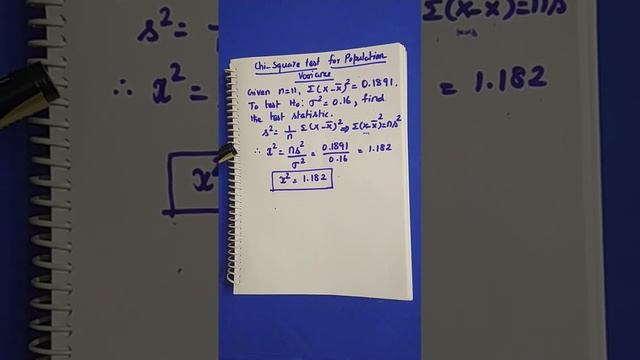 Chi-Square test for Population
Variance
Given n=11, Σ(x-x̄)² = 0.1891.
To test H₀: σ² = 0.16, find
the test statistic.
s² = 1/n Σ(x-x̄)² ⇒ Σ(x-x̄)² = ns²
∴ x² = ns²/σ² = 0.1891/0.16 = 1.182
x² = 1.182